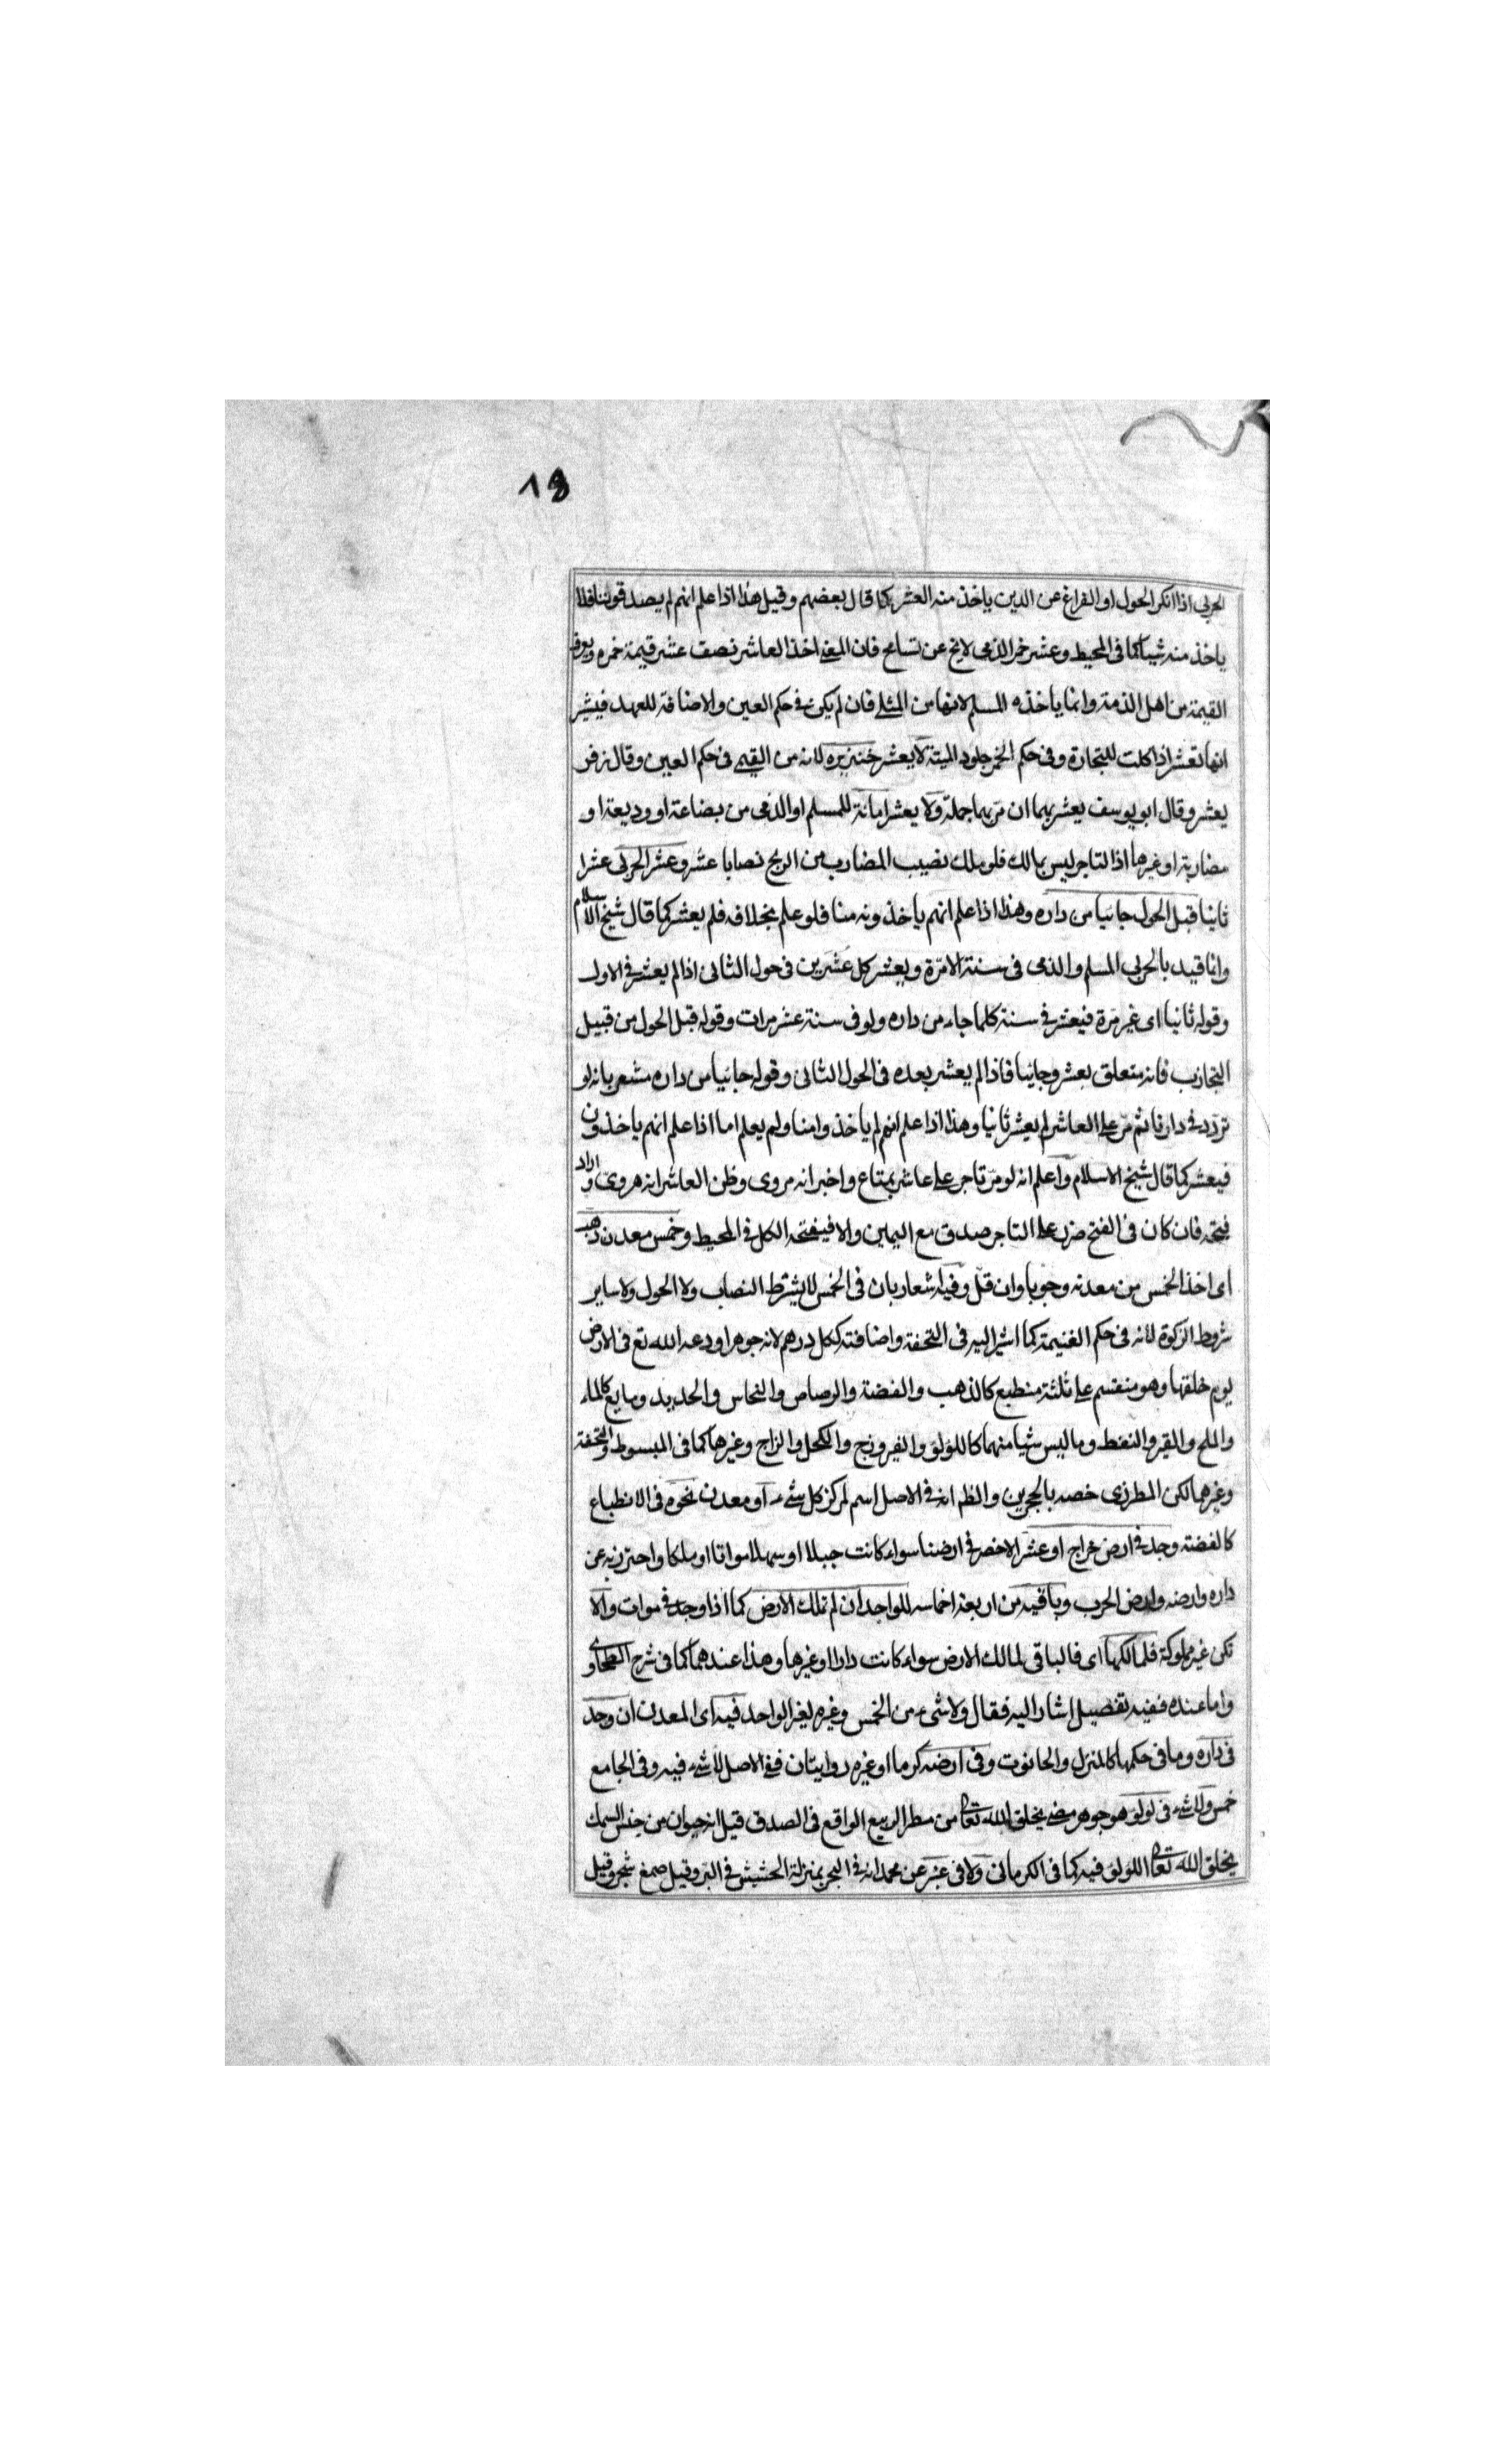 ١٩
الحربى اذا انكر الحول او الفراغ عن الدين ياخذ منه العشر كما قال بعضهم وقيل هذا اذا علم انهم لم يصدقوننا فلا
ياخذ منه شيا كما فى المحيط وعشر خمر الذمى لا يخ عن تسامح فان المعنى اخذ العاشر نصف عشر قيمة خمره ويعرف
القيمة من اهل الذمة وانما ياخذه المسلم لانها من المثلى فان لم يكن فى حكم العين والاضافة للعهد فيشير
انها تعشر اذا كانت للتجارة وفى حكم الخمر جلود الميتة لا يعشر خنزيره لانه من القيمى فى حكم العين وقال زفر
يعشر وقال ابو يوسف يعشر بهما ان مر بهما جملة ولا يعشر امانة للمسلم او الذمى من بضاعة او وديعة او
مضاربة او غيرها اذ التاجر ليس بمالك فلو ملك نصيب المضارب من الربح نصابا عشر وعشر الحربى عشرا
ثانيا قبل الحول جائيا من داره وهذا اذا علم انهم ياخذونه منا فلو علم بخلافه فلم يعشر كما قال شيخ الاسلام
وانما قيد بالحربى المسلم والذمى فى سنة الا مرة ويعشر كل عشرين فى حول الثانى اذا لم يعشر فى الاول
وقوله ثانيا اى غير مرة فيعشر فى سنة كلما جاء من داره ولو فى سنة عشر مرات وقوله قبل الحول من قبيل
التجاذب فانه متعلق بعشر وجائيا فاذا لم يعشر بعده فى الحول الثانى وقوله جائيا من داره مشعر بانه لو
تردد فى دارنا ثم مر على العاشر لم يعشر ثانيا وهذا اذا علم انهم لم ياخذوا منا ولم يعلم اما اذا علم انهم ياخذون
فيعشر كما قال شيخ الاسلام واعلم انه لو مر تاجر على عاشر بمتاع واخبر انه مروى وظن العاشر انه هروى واراد
فتحه فان كان فى الفتح ضرر على التاجر صدق مع اليمين والا فيفتحه الكل فى المحيط وخمس معدن ذهب
اى اخذ الخمس من معدنه وجوبا وان قل وفيه اشعار بان فى الخمس لا يشترط النصاب ولا الحول ولا ساير
شروط الزكوة لانه فى حكم الغنيمة كما اشير اليه فى التحفة واضافته ككل درهم لانه جوهر اودعه الله تع فى الارض
يوم خلقها وهو منقسم على ثلثة منطبع كالذهب والفضة والرصاص والنحاس والحديد ومايع كالماء
والملح والقير والنفط وما ليس شيا منهما كاللولؤ والفيروزج والكحل والزاج وغيرها كما فى المبسوط والتحفة
وغيرهما لكن المطرزى خصه بالحجرين والظ انه فى الاصل اسم لمركز كل شىء او معدن نحوه فى الانطباع
كالفضة وجد فى ارض خراج او عشر الاخصر فى ارضنا سواء كانت جبلا او سهلا مواتا او ملكا واحترز به عن
داره وارضه وارض الحرب وباقيه من اربعة اخماسه للواجد ان لم تملك الارض كما اذا وجد فى موات والا
تكن غير مملوكة فلمالكها اى فالباقى لمالك الارض سواء كانت دارا او غيرها وهذا عندهما كما فى شرح الطحاوى
واما عنده ففيه تفصيل اشار اليه فقال ولا شىء من الخمس وغيره لغير الواجد فيه اى المعدن ان وجد
فى داره وما فى حكمها كالمنزل والحانوت وفى ارضه كرما او غيره روايتان ففى الاصل لا شىء فيه وفى الجامع
خمس ولا شىء فى لؤلؤ هو جوهر مضىء يخلق الله تعالى من مطر الربيع الواقع فى الصدف قيل انه حيوان من جنس السمك
يخلق الله تعالى اللولؤ فيه كما فى الكرمانى ولا فى عنبر عن محمد انه فى البحر بمنزلة الحشيش فى البر وقيل صمغ شجر وقيل